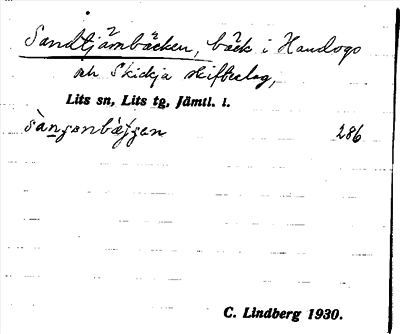 Sandtjärnbäcken, bäck i Handogs
och Skickja skifteslag,
Lits sn, Lits tg, Jämtl. l.
286
C. Lindberg 1930.